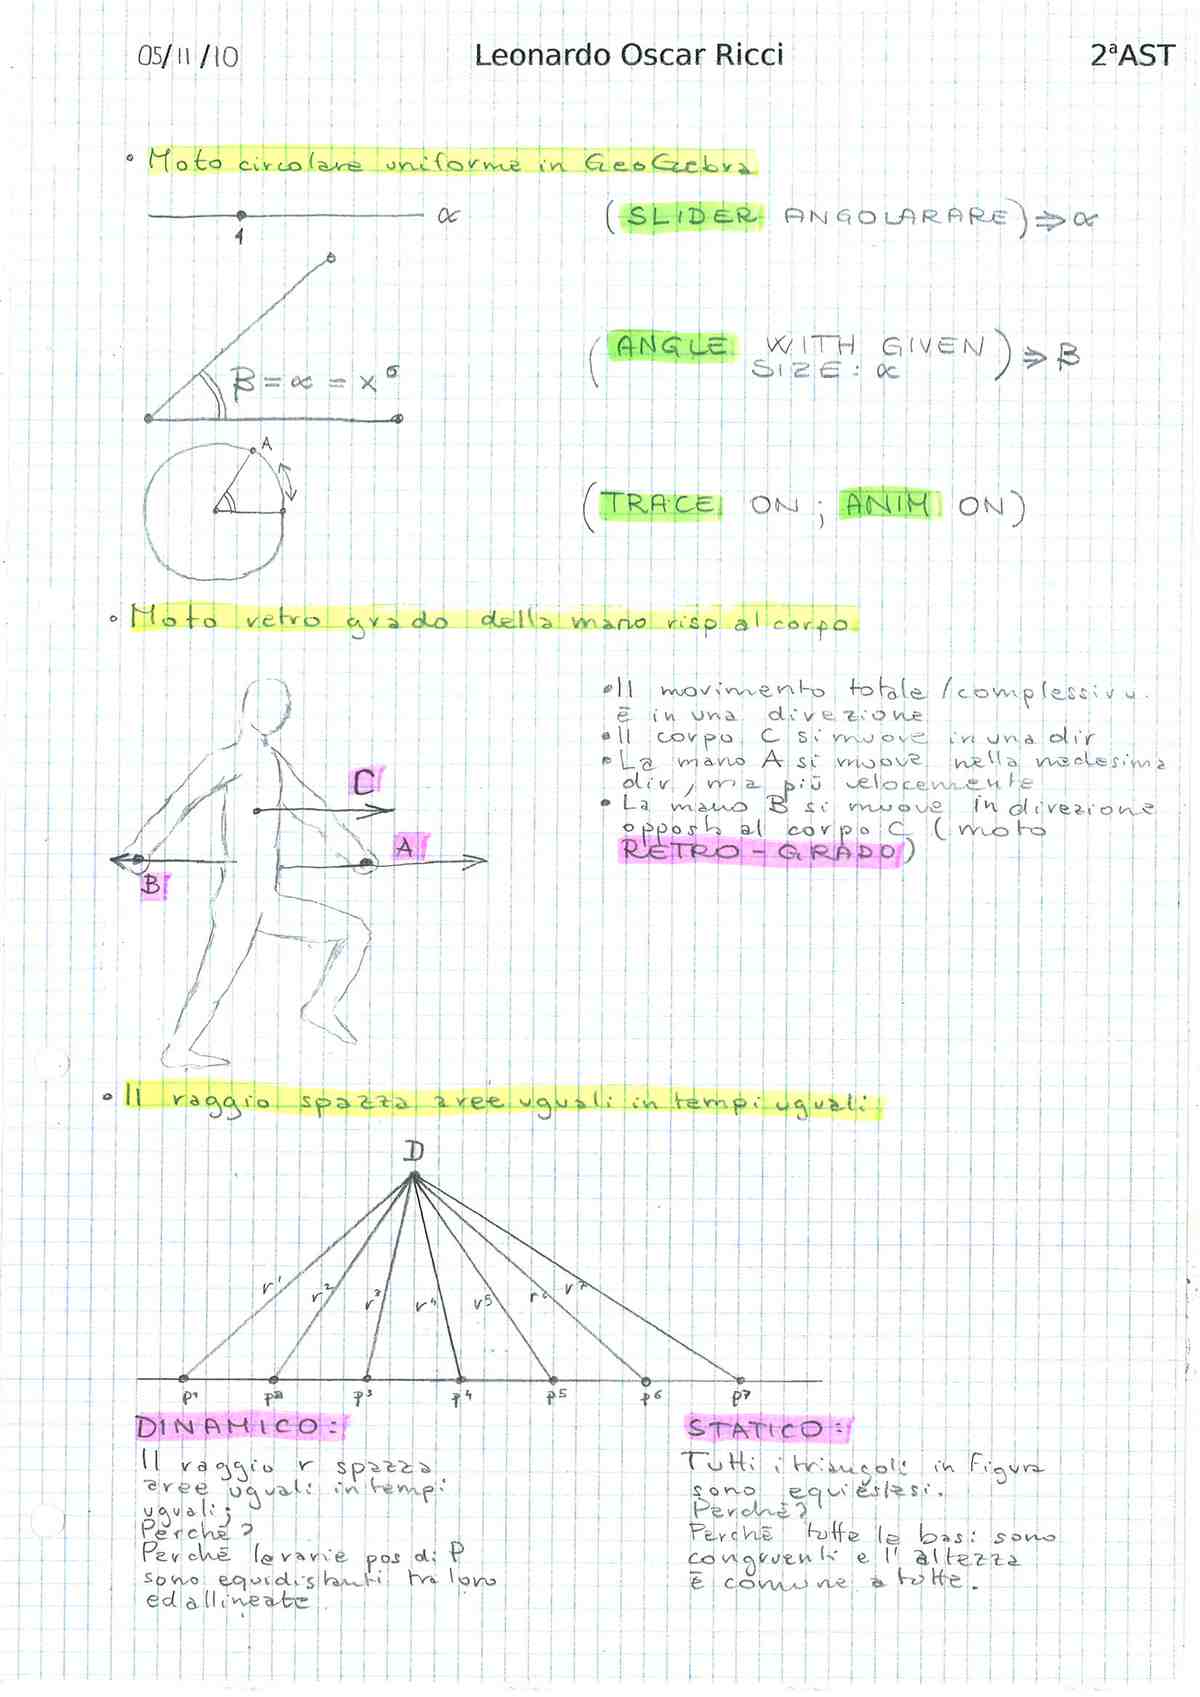 05/11/10
Leonardo Oscar Ricci
2ªAST
• Moto circolare uniforme in GeoGebra
α
1
(SLIDER ANGOLARARE) ⇒ α
(ANGLE WITH GIVEN SIZE: α) ⇒ β
β = α = x°
A
(TRACE ON ; ANIM ON)
• Moto retro grado della mano risp al corpo
C
A
B
• Il movimento totale / complessivo
è in una direzione
• Il corpo C si muove in una dir
• La mano A si muove nella medesima
dir, ma più velocemente
• La mano B si muove in direzione
opposta al corpo C (moto
RETRO-GRADO)
• Il raggio spazza aree uguali in tempi uguali
D
r¹ r² r³ r⁴ r⁵ r⁶ r⁷
P¹ P² P³ P⁴ P⁵ P⁶ P⁷
DINAMICO:
Il raggio r spazza
aree uguali in tempi
uguali;
Perchè?
Perchè le varie pos di P
sono equidistanti tra loro
ed allineate
STATICO:
Tutti i triangoli in figura
sono equiestesi.
Perchè?
Perchè tutte le basi sono
congruenti e l'altezza
è comune a tutte.